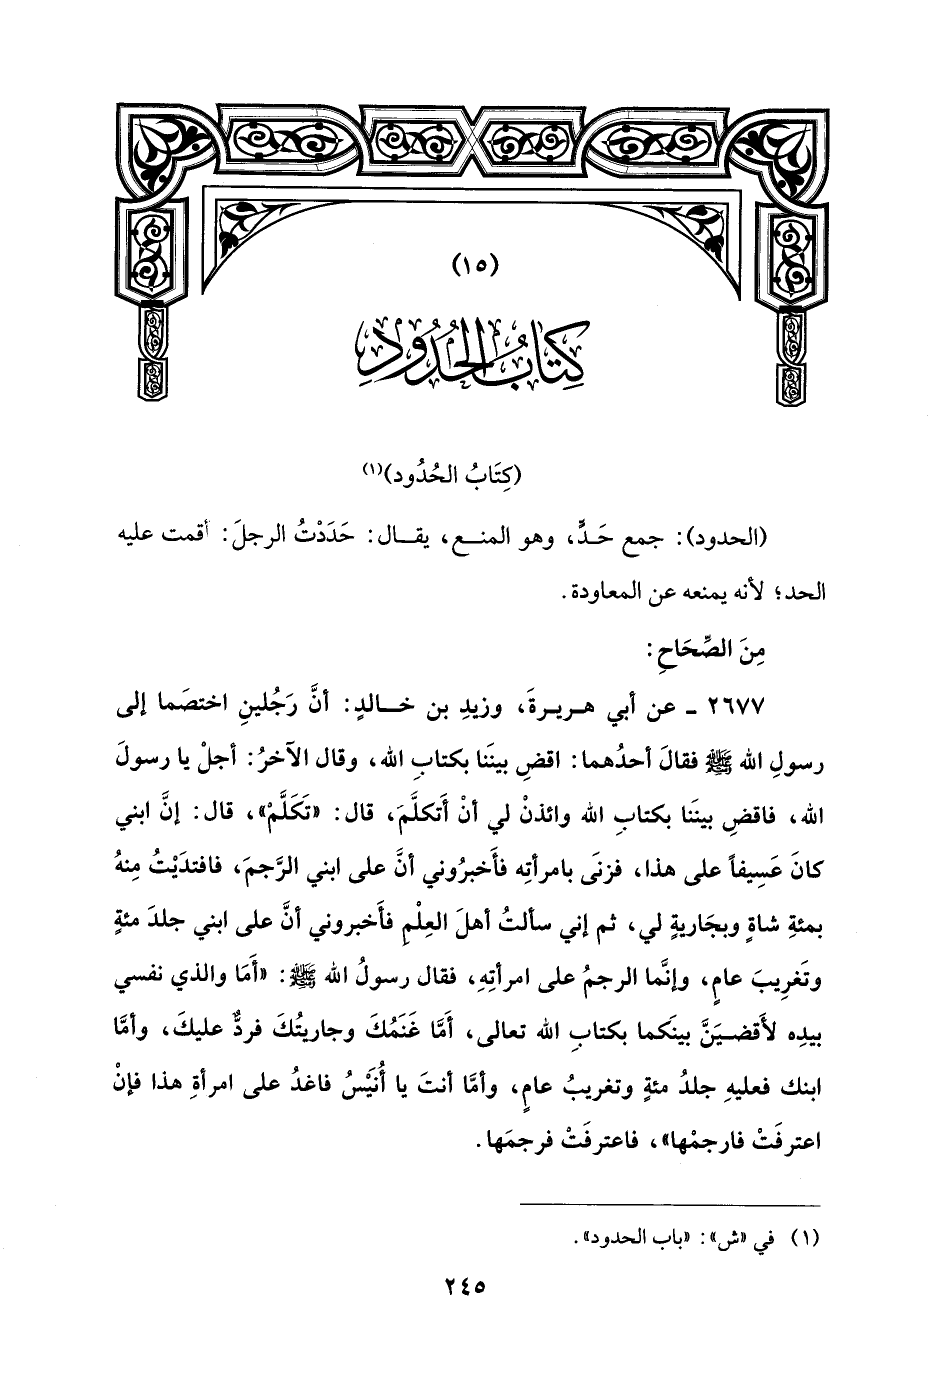 (١٥)
كِتَابُ الحُدُودِ
(كِتَابُ الحُدُود)(١)
(الحدود): جمع حَدٍّ، وهو المنع، يقال: حَدَدْتُ الرجلَ: أقمت عليه
الحد؛ لأنه يمنعه عن المعاودة.
مِنَ الصِّحَاحِ:
٢٦٧٧ ـ عن أبي هريرةَ، وزيدِ بن خالدٍ: أنَّ رَجُلينِ اختصَما إلى
رسولِ الله ﷺ فقالَ أحدُهما: اقضِ بينَنا بكتابِ الله، وقال الآخرُ: أجلْ يا رسولَ
الله، فاقضِ بينَنا بكتابِ الله وائذنْ لي أنْ أَتكلَّمَ، قال: «تَكَلَّمْ»، قال: إنَّ ابني
كانَ عَسِيفاً على هذا، فزنَى بامرأتِه فأَخبرُوني أنَّ على ابني الرَّجمَ، فافتدَيْتُ مِنهُ
بمئةِ شاةٍ وبجَاريةٍ لي، ثم إني سألتُ أهلَ العِلْمِ فأَخبروني أنَّ على ابني جلدَ مئةٍ
وتَغرِيبَ عامٍ، وإنَّما الرجمُ على امرأتِهِ، فقال رسولُ الله ﷺ: «أَمَا والذي نفسي
بيدِه لأَقضيَنَّ بينَكما بكتابِ الله تعالى، أَمَّا غَنَمُكَ وجاريتُكَ فردٌّ عليكَ، وأمَّا
ابنك فعليهِ جلدُ مئةٍ وتغريبُ عامٍ، وأمَّا أنتَ يا أُنَيْسُ فاغدُ على امرأةِ هذا فإنْ
اعترفَتْ فارجمْها»، فاعترفَتْ فرجمَها.
(١) في «ش»: «باب الحدود».
٢٤٥